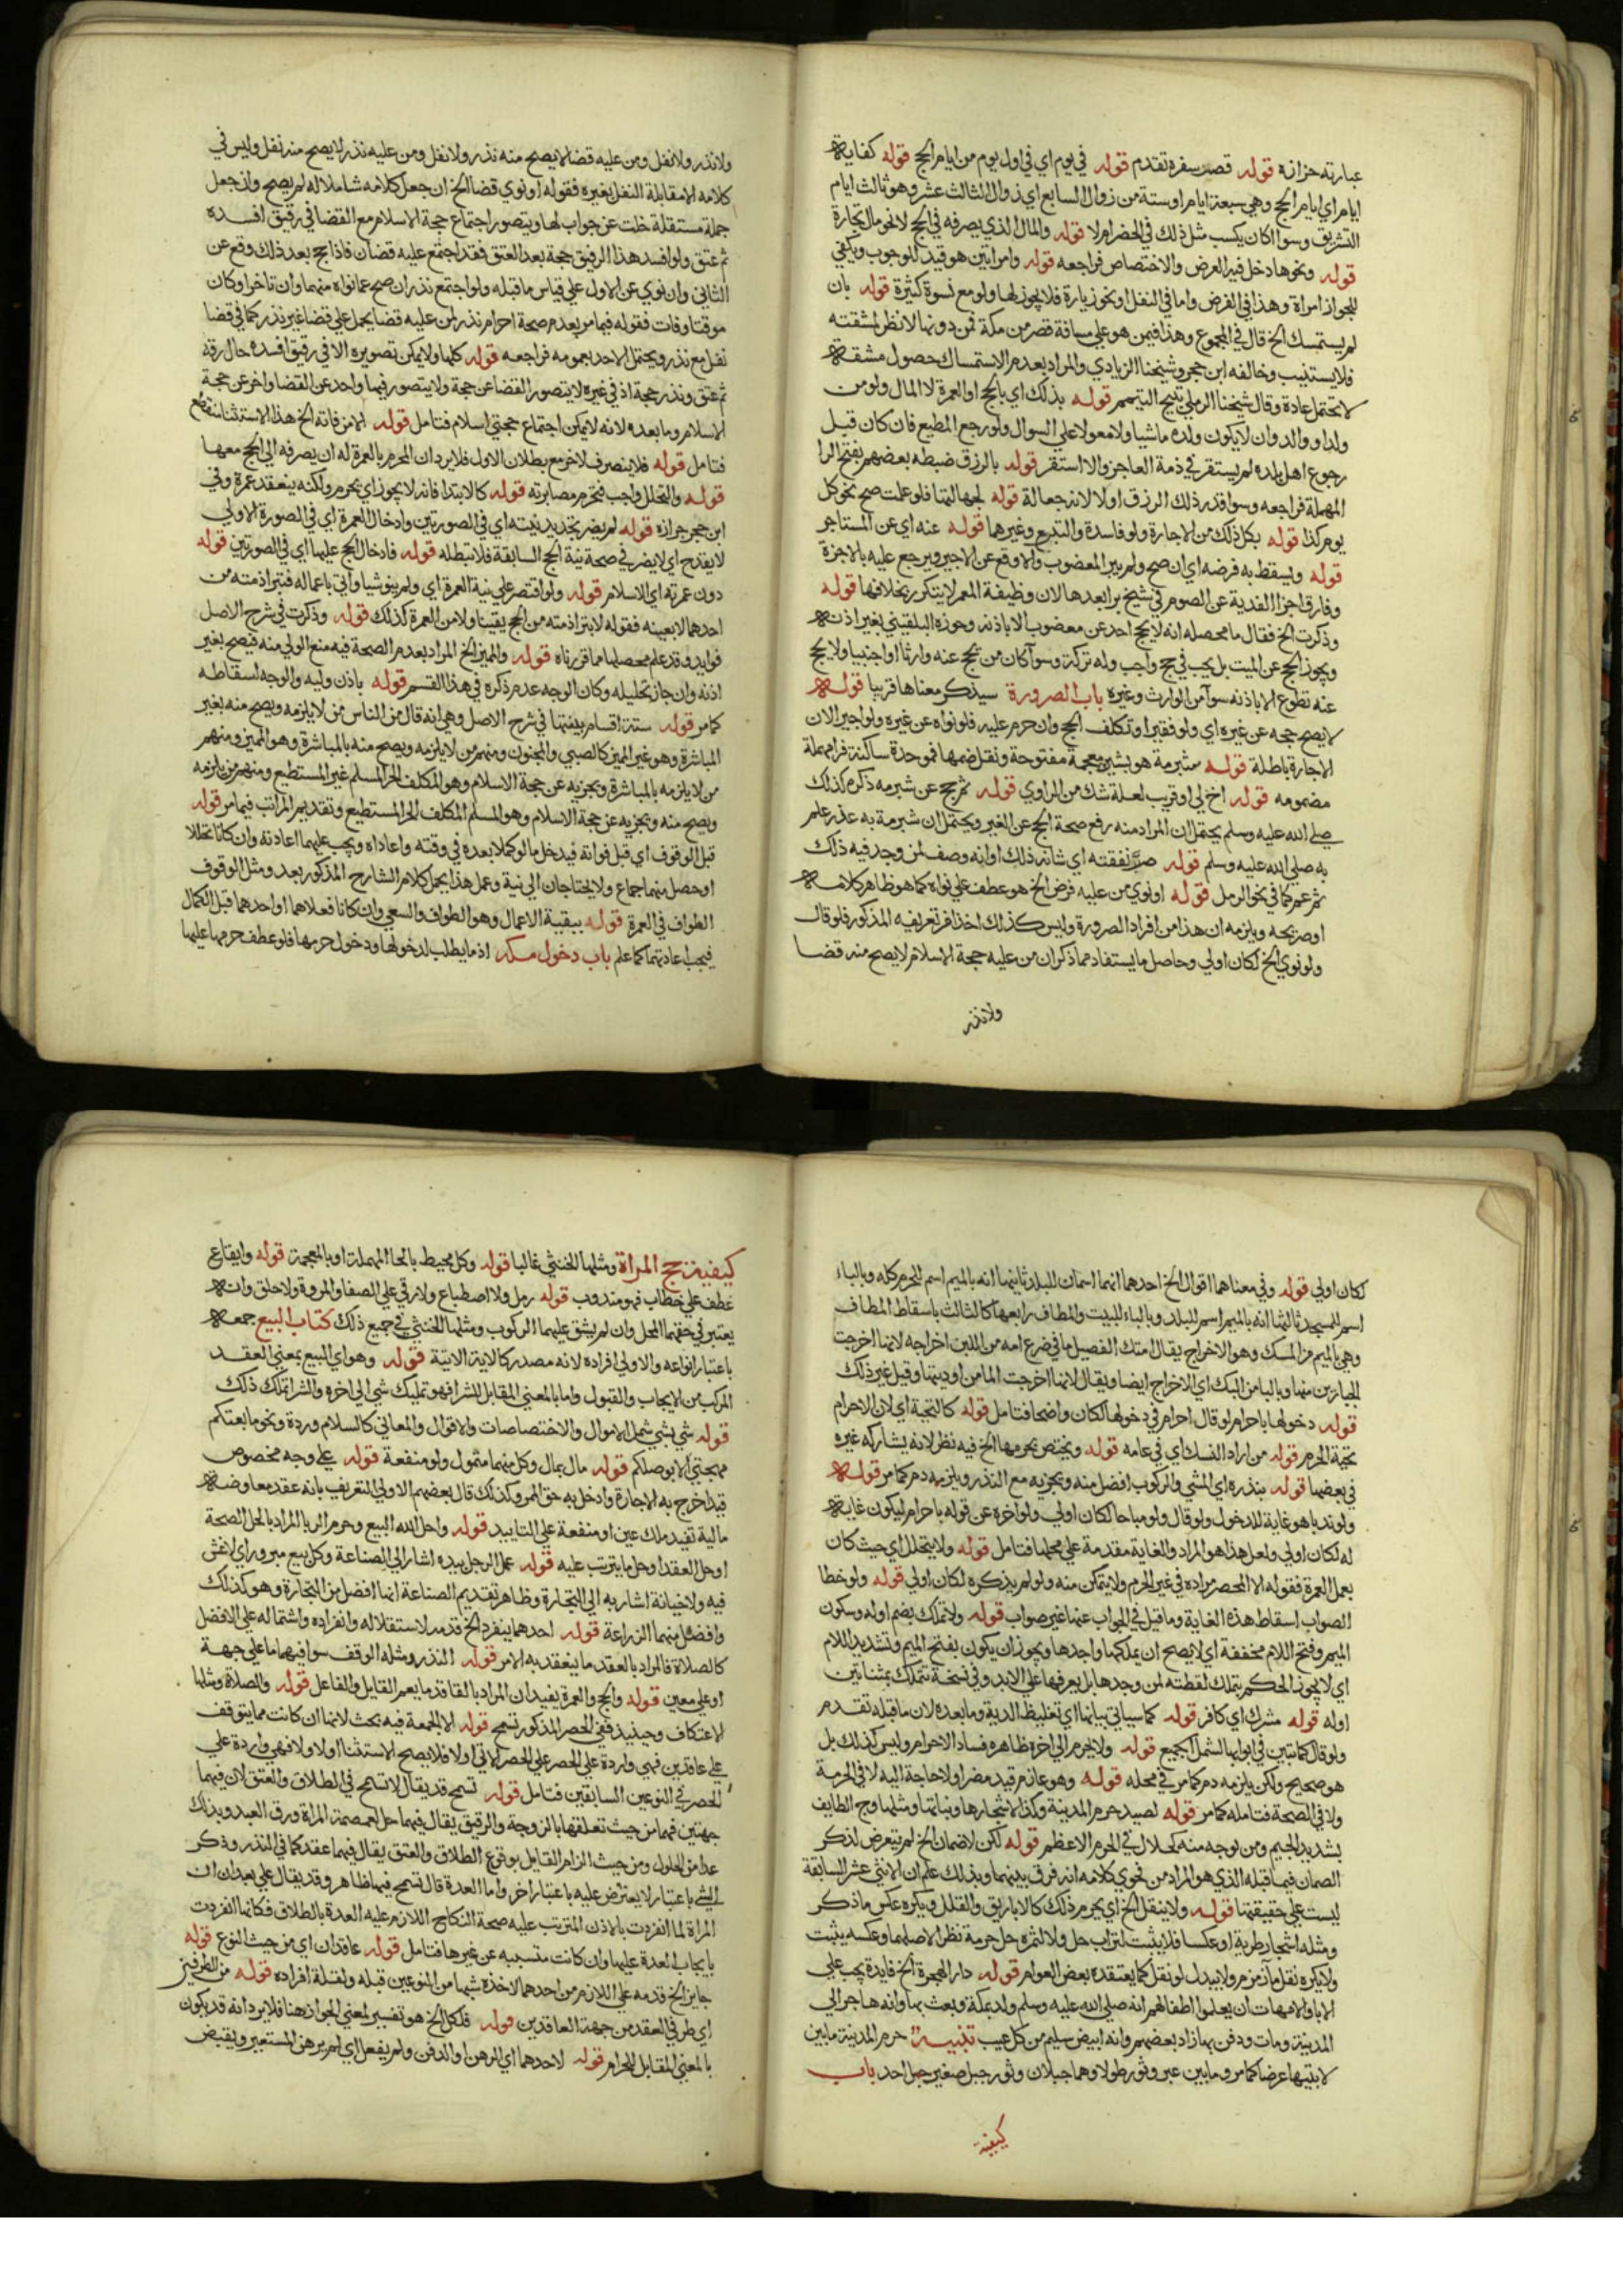 عبارته حزازة قوله قصد سفره تقدم قوله في يوم اي في اول يوم من ايام الحج قوله كفاية
ايام اي ايام الحج وهي سبعة ايام اوستة من زوال السابع اي زوال الثالث عشر وهو ثالث ايام
التشريق وسوا كان يكسب مثل ذلك في الحضر ام لا قوله والمال الذي يصرفه في الحج لا نحو مال تجارة
قوله ونحوها دخل فيه العرض والاختصاص فراجعه قوله وامراتين هو قيد للوجوب ويكفي
للجواز امراة وهذا في الفرض واما في النفل او نحو زيارة فلا يجوز لها ولو مع نسوة كثيرة قوله بان
لم يستمسك الخ قال في المجموع وهذا فيمن هو علي مسافة قصر من مكة فمن دونها لا نظر لمشقته
فلا يستنيب وخالفه ابن حجر وشيخنا الزيادي والمراد بعدم الاستمساك حصول مشقة
لا تحتمل عادة وقال شيخنا الرملي تبيح التيمم قوله بذلك اي بالحج او العمرة لا المال ولو من
ولد او والد وان لا يكون ولده ماشيا ولا معولا علي السوال ولو رجع المطيع فان كان قبل
رجوع اهل بلده لم يستقر في ذمة العاجز والا استقر قوله بالرزق ضبطه بعضهم بفتح الرا
المهملة فراجعه وسوا قدر ذلك الرزق او لا لانه جعالة قوله لجهالتها فلو علمت صح نحو كل
يوم كذا قوله بكل ذلك من الاجارة ولو فاسدة والتبرع وغيرهما قوله عنه اي عن المستاجر
قوله ويسقط به فرضه اي ان صح ولم يبر المعضوب والا وقع عن الاجير ويرجع عليه بالاجرة
وفارق اجزا الفدية عن الصوم في شيخ برا بعدها لان وظيفة العمر لا يتكرر بخلافها قوله
وذكرت الخ فقال ما محصله انه لا يحج احد عن معضوب الا باذنه وجوزه البلقيني بغير اذنه
ويجوز الحج عن الميت بل يجب في حج واجب وله تركة وسوآ كان من يحج عنه وارثا او اجنبيا ولا يحج
عنه تطوع الا باذنه سوآ من الوارث وغيره باب الصرورة سيذكر معناها قريبا قوله
لا يصح حجه عن غيره اي ولو فقيرا وتكلف الحج وان حرم عليه فلو نواه عن غيره ولو اجيرا لان
الاجارة باطلة قوله شبرمة هو بشين معجمة مفتوحة ونقل ضمها فموحدة ساكنة فرا مهملة
مضمومه قوله اخ لي او قريب لعله شك من الراوي قوله ثم حج عن شبرمه ذكره كذلك
صلي الله عليه وسلم يحتمل ان المراد منه رفع صحة الحج عن الغير ويحتمل ان شبرمة به عذر علم
به صلي الله عليه وسلم قوله صرّ نفقته اي شانه ذلك او انه وصف لمن وجد فيه ذلك
ثم عم كما في نحو الرمل قوله او نوي من عليه فرض الخ هو عطف علي نواه كما هو ظاهر كلامه
او صريحه ويلزمه ان هذا من افراد الصرورة وليس كذلك اخذا من تعريفه المذكور فلو قال
ولو نوي الخ لكان اولي وحاصل ما يستفاد مما ذكر ان من عليه حجة الاسلام لا يصح منه قضا
ولا نذر
ولا نذر ولا نفل ومن عليه قضا لا يصح منه نذر ولا نفل ومن عليه نذر لا يصح منه نفل وليس في
كلامه الا مقابلة النفل بغيره فقوله او نوي قضا الخ ان جعل كلامه شاملا له لم يصح وان جعل
جملة مستقلة خلت عن جواب لها ويتصور اجتماع حجة الاسلام مع القضا في رقيق افسده
ثم عتق ولو افسد هذا الرقيق حجة بعد العتق فقد اجتمع عليه قضان فاذا حج بعد ذلك وقع عن
الثاني وان نوي عن الاول علي قياس ما قبله ولو اجتمع نذران صح عما نواه منهما وان تاخر او كان
موقتا وفات فقوله فيما مر بعدم صحة احرام نذر لمن عليه قضا يحمل علي قضا غير نذر كما في قضا
نفل مع نذر ويحتمل الاخذ بعمومه فراجعه قوله كلها ولا يمكن تصويره الا في رقيق افسده حال رقه
ثم عتق ونذر حجة اذ في غيره لا يتصور القضا عن حجة ولا يتصور فيها واحد عن القضا واخر عن حجة
الاسلام وما بعده لانه لا يمكن اجتماع حجتي اسلام فتامل قوله الا من فاته الخ هذا الاستثنا منقطع
فتامل قوله فلا ينصرف لاخر مع بطلان الاول فلا يرد ان المحرم بالعمرة له ان يصرفه الي الحج معها
قوله والتحلل واجب فتحرم مصابرته قوله كالابتدا فانه لا يجوز اي يحرم ولكنه ينعقد عمرة وفي
ابن حجر جوازه قوله لم يضر تجديد نيته اي في الصورتين وادخال العمرة اي في الصورة الاولي
لا يقدح اي لا يضر في صحة نية الحج السابقة فلا تبطله قوله فادخال الحج عليها اي في الصورتين قوله
دون عمرته اي الاسلام قوله ولو اقتصر علي نية العمرة اي ولم ينو شيا واتي باعماله فتبرا ذمته من
احدهما لا بعينه فقوله لا تبرا ذمته من الحج يقينا ولا من العمرة كذلك قوله وذكرت في شرح الاصل
فوايد وقد علم محصلها مما قررناه قوله والمميز الخ المراد بعدم الصحة فيه منع الولي منه فيصح بغير
اذنه وان جاز تحليله وكان الوجه عدم ذكره في هذا القسم قوله باذن وليه والوجه اسقاطه
كما مر قوله ستة اقسام بينتها في شرح الاصل وهي انه قال من الناس من لا يلزمه ويصح منه بغير
المباشرة وهو غير المميز كالصبي والمجنون ومنهم من لا يلزمه ويصح منه بالمباشرة وهو المميز ومنهم
من لا يلزمه بالمباشرة ويجزيه عن حجة الاسلام وهو المكلف الحر المسلم غير المستطيع ومنهم من يلزمه
ويصح منه ويجزيه عن حجة الاسلام وهو المسلم المكلف الحر المستطيع وتقديم المراتب فيما مر قوله
قبل الوقوف اي قبل فواته فيدخل ما لو كملا بعده في وقته واعاداه ويجب عليهما اعادته وان كانا تحللا
او حصل منهما جماع ولا يحتاجان الي نية وعمل هذا يحمل كلام الشارح المذكور بعد ومثل الوقوف
الطواف في العمرة قوله ببقية الاعمال وهو الطواف والسعي وان كانا فعلاهما او احدهما قبل الكمال
فيجب اعادتهما كما علم باب دخول مكة اذ ما يطلب لدخولها ودخول حرمها فلو عطف حرمها عليها
لكان اولي قوله وفي معناهما اقوال الخ احدها انهما اسمان للبلد ثانيها انه بالميم اسم للحرم كله وبالباء
اسم للمسجد ثالثها انه بالميم اسم للبلد وبالباء للبيت والمطاف رابعها كالثالث باسقاط المطاف
وهي بالميم من المك وهو الاخراج يقال امتك الفصيل ما في ضرع امه من اللبن اخراجه لانها اخرجت
الجبارين منها وبالبا من البك اي الاخراج ايضا ويقال لانها اخرجت الما من اوديتها وقيل غير ذلك
قوله دخولها باحرام لو قال احرام في دخولها لكان واضحا فتامل قوله كالتحية اي لان الاحرام
تحية الحرم قوله من اراد النسك اي في عامه قوله ويختص بحرمها الخ فيه نظر لانه يشاركه غيره
في بعضها قوله بنذره اي المشي والركوب افضل منه ويجزيه مع النذر ويلزمه دم كما مر قوله
ولو ندبا هو غاية للدخول ولو قال ولو مباحا لكان اولي ولو اخره عن قوله باحرام ليكون غاية
له لكان اولي ولعل هذا هو المراد والغاية مقدمة علي محلها فتامل قوله ولا يتحلل اي حيث كان
بعمل العمرة فقوله الا المحصر مراده في غير الحرم ولا يتمكن منه ولو لم يذكره لكان اولي قوله ولو خطا
الصواب اسقاط هذه الغاية وما قيل في الجواب عنها غير صواب قوله ولا تملك بضم اوله وسكون
الميم وفتح اللام مخففة اي لا يصح ان يملكها واجدها ويجوز ان يكون بفتح الميم وتشديد اللام
اي لا يجوز الحكم بتملك لقطته لمن وجدها بل يعرفها علي الابد وفي نسخة تتملك بمثناتين
اوله قوله مشرك اي كافر قوله كما سياتي بيانها اي تغليظ الدية وما بعده لان ما قبله تقدم
ولو قال كما تبين في ابوابها لشمل الجميع قوله ولا يحرم الي اخره ظاهره فساد الاحرام وليس كذلك بل
هو صحيح ولكن يلزمه دم كما مر في محله قوله وهو عازم قيد مضر اولا حاجة اليه لا في الحرمة
ولا في الصحة فتامله كما مر قوله لصيد حرم المدينة وكذا لاشجارها ونباتها ومثلها وج الطايف
بشديد الجيم ومن توجه منه كحلال في الحرم الاعظم قوله لكن لا ضمان الخ لم يتعرض لذكر
الضمان فيما قبله الذي هو المراد من فحوي كلامه انه فرق بينهما وبذلك علم ان الاثني عشر السابقة
ليست علي حقيقتها قوله ولا ينقل الخ اي يحرم ذلك كالاباريق والقلل ويكره عكس ما ذكر
ومثله اشجار طرية او عكسا فلا يثبت لتراب حل ولا لشجره حل حرمة نظرا لاصلهما وعكسه يثبت
ولا يكره نقل مآ زمزم ولا يبدل لو نقل كما يعتقده بعض العوام قوله دار الهجرة الخ فايدة يجب علي
الابا والامهات ان يعلموا اطفالهم انه صلي الله عليه وسلم ولد بمكة وبعث بها وانه هاجر الي
المدينة ومات ودفن بها زاد بعضهم وانه ابيض سليم من كل عيب تنبيه حرم المدينة ما بين
لابتيها عرضا كما مر وما بين عير وثور طولا وهما جبلان وثور جبل صغير جبل احد باب
كيفية
كيفية حج المراة ومثلها الخنثي غالبا قوله وكل محيط بالحا المهملة او بالمعجمة قوله وايقاع
عطف علي خطاب فهو مندوب قوله رمل ولا اضطباع ولا رقي علي الصفا والمروة ولا حلق وانه
يعتبر في حقهما المحل وان لم يشق عليهما الركوب ومثلها الخنثي في جميع ذلك كتاب البيع جمعه
باعتبار انواعه والاولي افراده لانه مصدر كالاية الاتية قوله وهو اي البيع بمعني العقد
المركب من الايجاب والقبول واما بالمعني المقابل للشرا فهو تمليك شي الي اخره والشرا تملك ذلك
قوله شي بشي شمل الاموال والاختصاصات والاقوال والمعاني كالسلام ورده ونحو ما بعتكم
مهجتي الا بوصلكم قوله مال بمال وكل منهما متمول ولو منفعة قوله علي وجه مخصوص
قيد اخرج به الاجارة وادخل به حق الممر وكذلك قال بعضهم الاولي التعريف بانه عقد معاوضة
مالية تفيد ملك عين او منفعة علي التابيد قوله واحل الله البيع وحرم الربا المراد بالحل الصحة
او حل العقد او حل ما يترتب عليه قوله عمل الرجل بيده اشار الي الصناعة وكل بيع مبرور اي لا غش
فيه ولا خيانة اشار به الي التجارة وظاهر تقديم الصناعة انها افضل من التجارة وهو كذلك
وافضل منهما الزراعة قوله احدهما ينفرد الخ قدمه لاستقلاله وانفراده واشتماله علي الافضل
كالصلاة فالمراد بالعقد ما ينعقد به الامر قوله النذر ومثله الوقف سوا فيهما ما علي جهة
او علي معين قوله والحج والعمرة يفيد ان المراد بالعاقد ما يعم القايل والفاعل قوله والصلاة ومثلها
الاعتكاف وحينيذ ففي الحصر المذكور تسمح قوله الا الجمعة فيه بحث لانها ان كانت مما يتوقف
علي عاقدين فهي واردة علي الحصر علي الحصر الاتي اولا فلا يصح الاستثنا اولا ولا فهي واردة علي
الحصر في النوعين السابقين فتامل قوله تسمح قد يقال لا تسمح في الطلاق والعتق لان فيهما
جهتين فهما من حيث تعلقهما بالزوجة والرقيق يقال فيهما حل لعصمة المراة ورق العبد وبذلك
عدا من الحلول ومن حيث الزام القايل بوقوع الطلاق والعتق يقال فيهما عقد كما في النذر وذكر
الشي باعتبار لا يعترض عليه باعتبار اخر واما العدة قال تسمح فيها ظاهر وقد يقال علي بعد ان
المراة لما انفردت بالاذن المترتب عليه صحة النكاح اللازم عليه العدة بالطلاق فكانها انفردت
بايجاب العدة عليها وان كانت متسببه عن غيرها فتامل قوله عاقدان اي من حيث النوع قوله
جايز الخ قدمه علي اللازم من احدهما لاخذه شبها من النوعين قبله ولقلة افراده قوله من الطرفين
اي طرفي العقد من جهة العاقدين قوله فلكل الخ هو تفسير لمعني الجواز هنا فلا يرد انه قد يكون
بالمعني المقابل للحرام قوله لاحدهما اي الرهن او الدفن ولم يفعل اي لم يرهن المستعير ويقبض